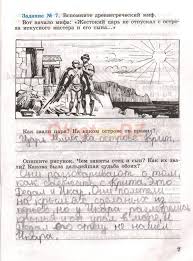 Задание № 7. Вспомните древнегреческий миф.
Вот начало мифа: «Жестокий царь не отпускал с острова искусного мастера и его сына...»
Как звали царя? На каком острове он правил?
Царь Минос на острове Крит.
Опишите рисунок. Чем заняты отец и сын? Как их звали? Какова была дальнейшая судьба обоих?
Они разговаривают о том,
как сбежать с Крита. Это
Дедал и Икар. Они полетели
на крыльях сделанных из
перьев, но у Икара
крылья и он упал в море. И
его отец не нашёл
Икара.
7